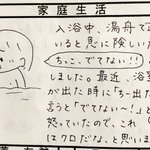 家庭生活
入浴中、湯舟で
いると急に険しい
ちっこ、でてない!!
しました。最近、浴
が出た時に「ち-出た
言うと「でてな〜い!」
怒っていたので、これ
はクロだな、と思いま